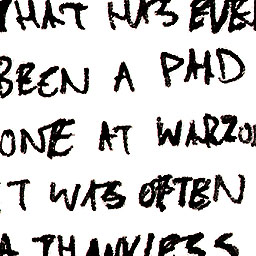 THAT HAS EVE
BEEN A PHD
ONE AT WARZO
T WAS OFTEN
A THANKLESS